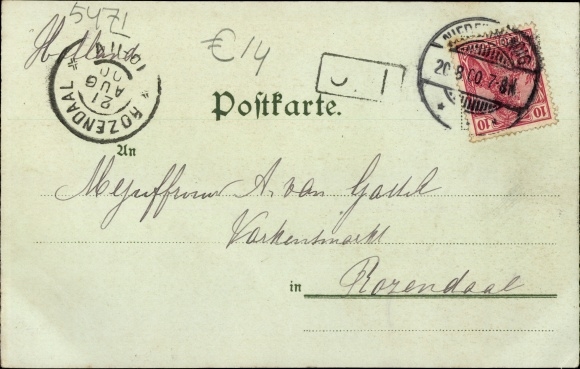 5471
Holland
€14
ROZENDAAL
21
AUG
00
20.8.00.7-8N.
10
10
Postkarte.
An
Mejuffrouw A. van Gastel
Varkensmarkt
in Rozendaal